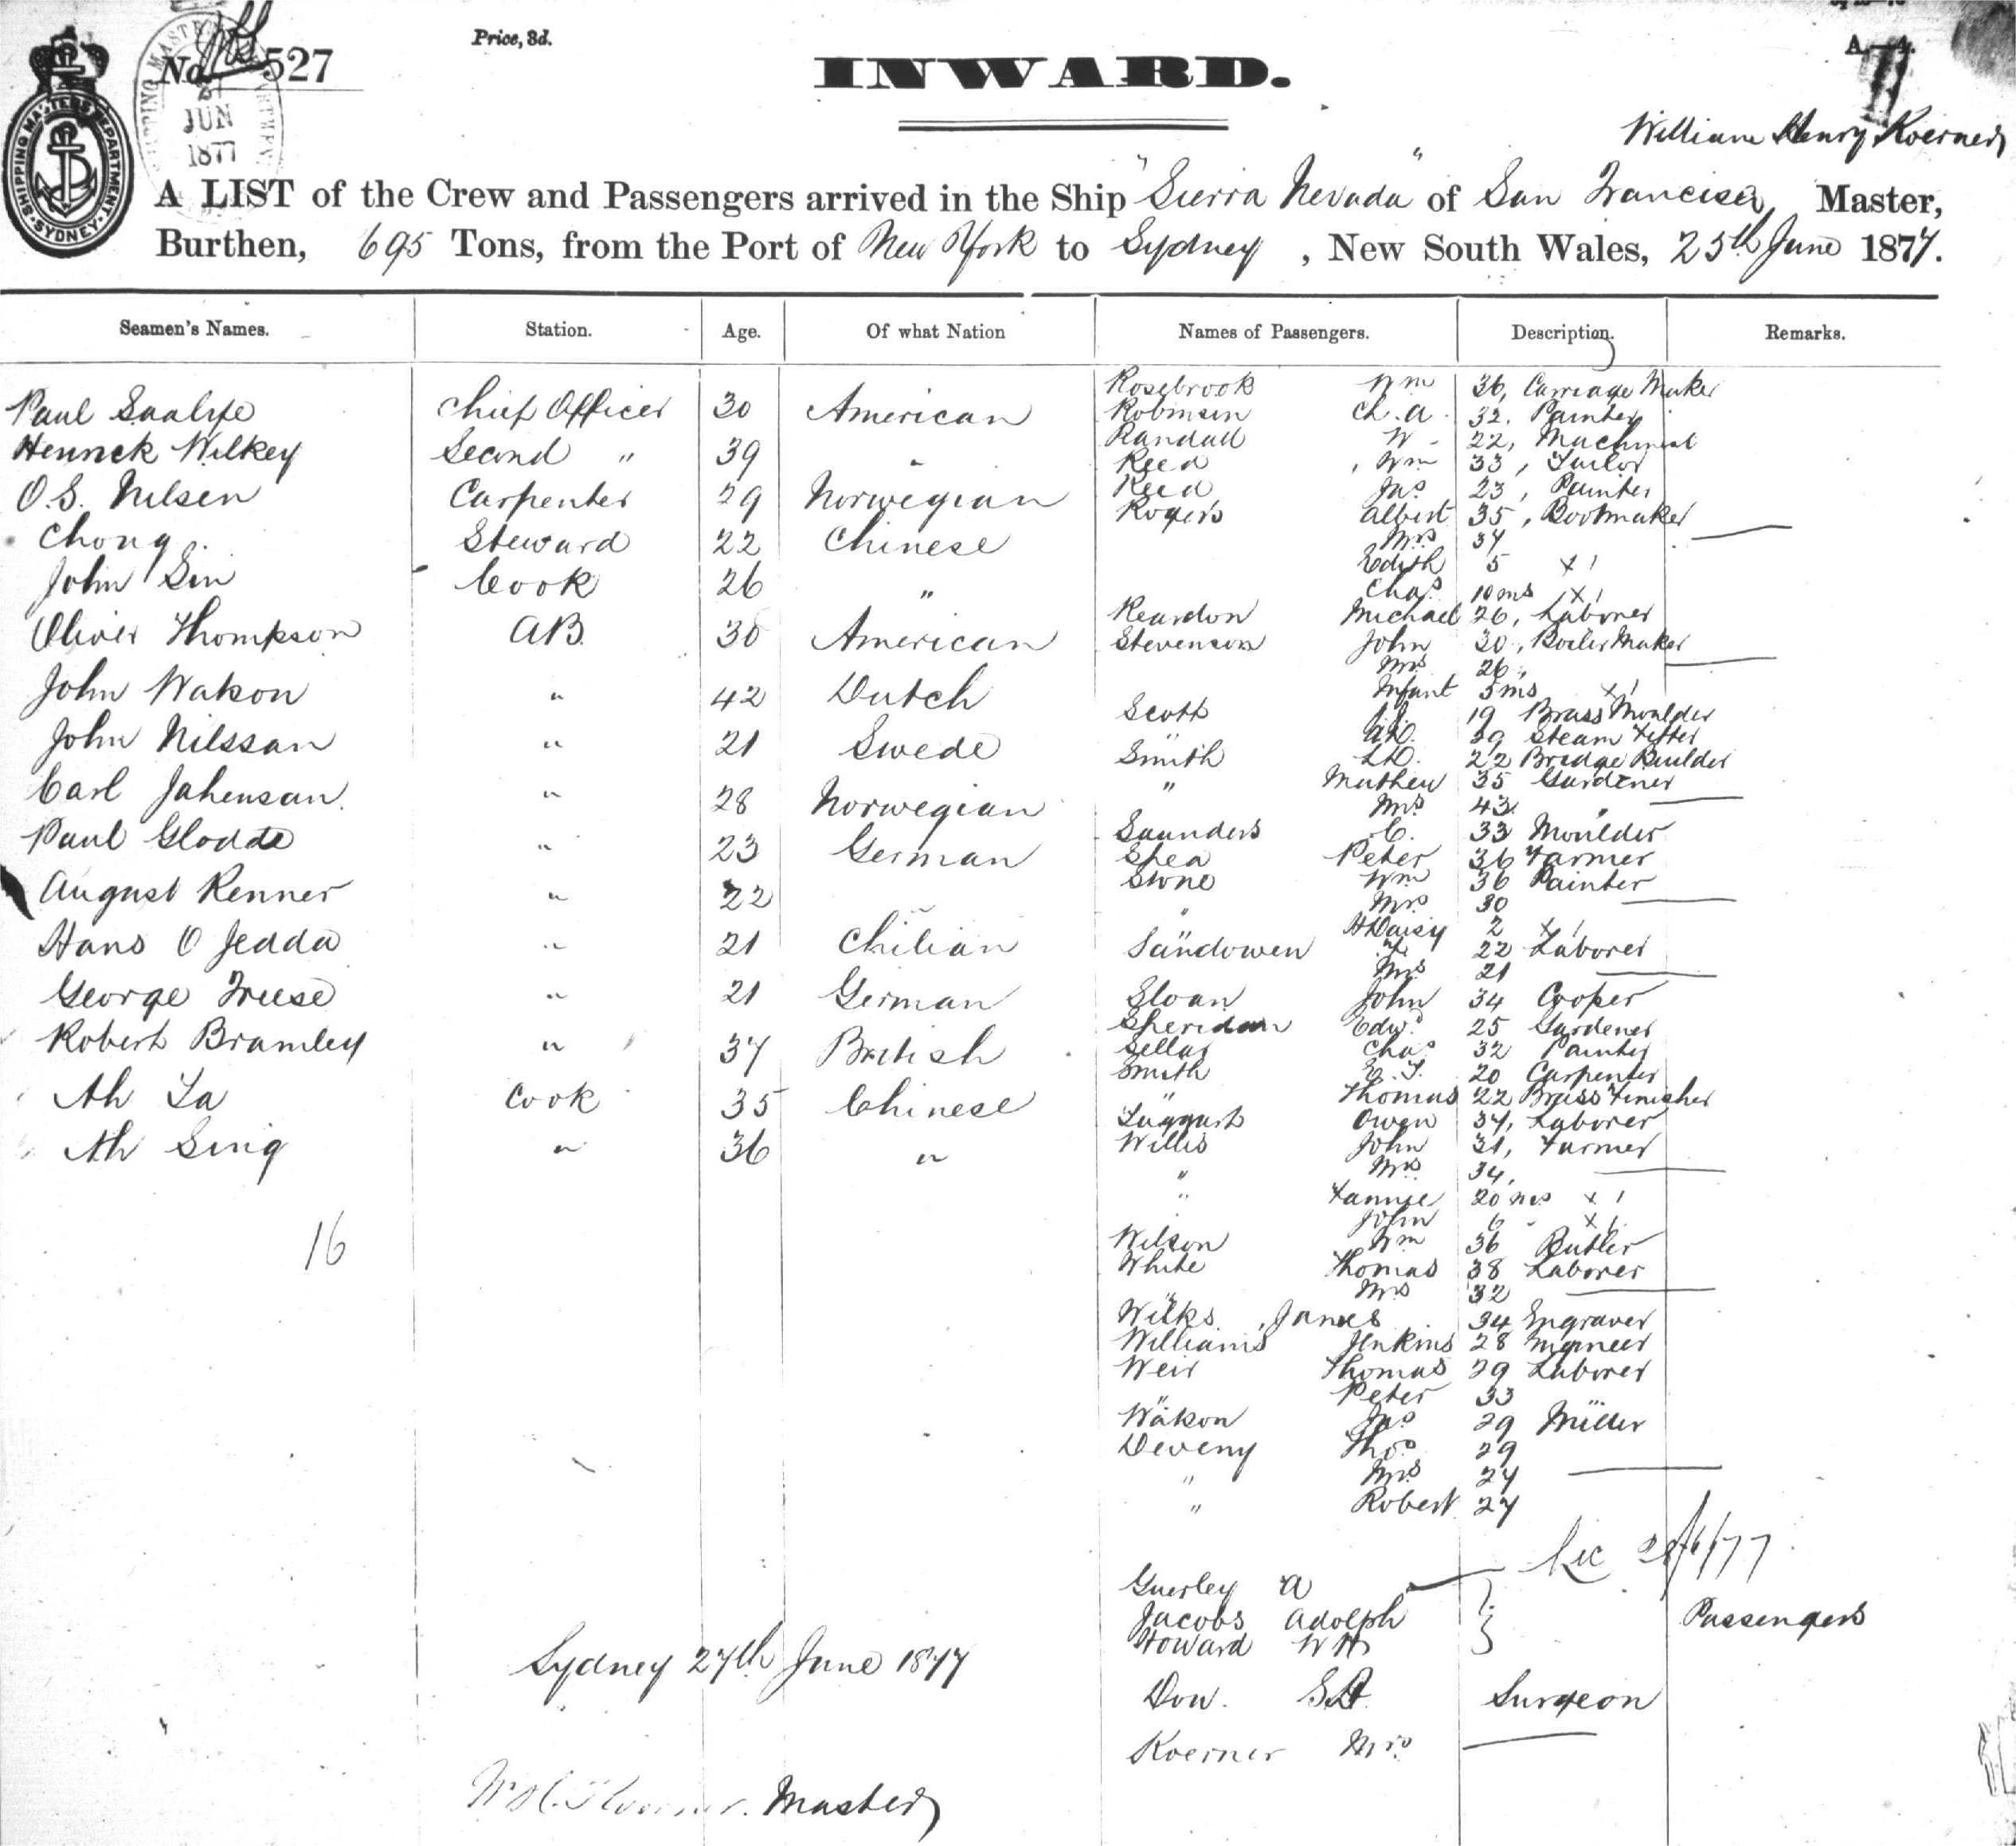 No 527
Price, 3d.
INWARD.
A.—4.
SHIPPING MASTERS DEPARTMENT
SYDNEY
JUN
1877
William Henry Koerner
A LIST of the Crew and Passengers arrived in the Ship "Sierra Nevada" of San Francisco, Master,
Burthen, 695 Tons, from the Port of New York to Sydney, New South Wales, 25th June 1877.
Seamen's Names. Station. Age. Of what Nation Names of Passengers. Description. Remarks.
Paul Chief Officer 30 American
Henrick Wilkey Second " 39 "
O.S. Nilsen Carpenter 29 Norwegian
Chong Steward 22 Chinese
John Sin Cook 26 "
Oliver Thompson AB. 30 American
John Watson " 42 Dutch
John Nilssan " 21 Swede
Carl Jahensan " 28 Norwegian
Paul Glodde " 23 German
August Renner " 22 "
Hans O Jedda " 21 Chilian
George Freese " 21 German
Robert Bramley " 37 British
Ah La Cook 35 Chinese
Ah Sing " 36 "
16
Rosebrook Wm 36, Carriage Maker
Robinson Ch. A. 32. Painter
Randall W 22, Machinist
Reed Wm 33, Tailor
Reed Jas 23, Painter
Rogers Albert 35, Bootmaker
Mrs 37
Edith 5 x 1
Chas 10ms x 1
Reardon Michael 26, Laborer
Stevenson John 30, Boiler Maker
Mrs 26
Infant 5ms x 1
Scott 19 Brass Moulder
" 29 Steam Fitter
Smith 22 Bridge Builder
" Mathew 35 Gardener
Mrs 43 "
Saunders C. 33 Moulder
Shea Peter 36 Farmer
Stone Wm 36 Painter
" Mrs 30
H Daisy 2 x 1
Sandowen 22 Laborer
" Mrs 21
Sloan John 34 Cooper
Sheridan Edwd 25 Gardener
Sellas Chas 32 Painter
Smith 20 Carpenter
" Thomas 22 Brass Finisher
Taggart Owen 37, Laborer
Willis John 31, Farmer
" Mrs 34,
" Fannie 20 ms x 1
John 6 " x 1
Wilson Wm 36 Butler
White Thomas 38 Laborer
" Mrs 32
Wilks James 34 Engraver
Williams Jenkins 28 Engineer
Weir Thomas 29 Laborer
" Peter 33 "
Watson Jas 29 Miller
Deveny Thos 29
" Mrs 27
" Robert 27
Rec /6/77
Guerley A
Jacobs Adolph Passengers
Howard W H
Dow. Surgeon
Koerner Mrs
Sydney 27th June 1877
W H Koerner. Master